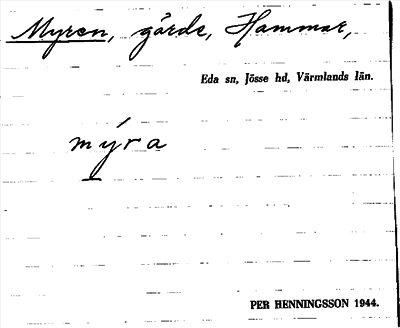 Myren, gärde, Hammar,
Eda sn, Jösse hd, Värmlands län.
mýra
PER HENNINGSSON 1944.